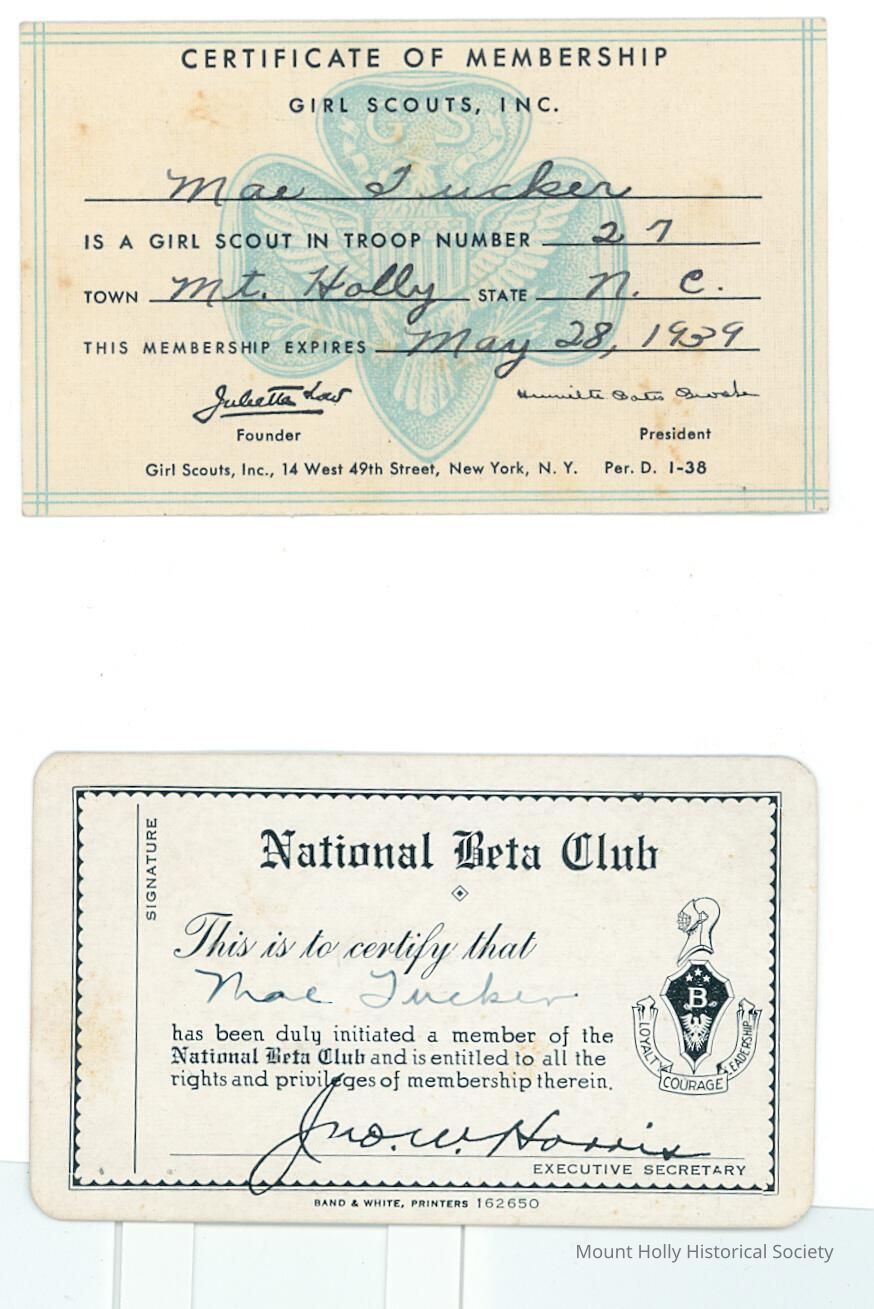 CERTIFICATE OF MEMBERSHIP
GIRL SCOUTS, INC.
G S
Mae Tucker
IS A GIRL SCOUT IN TROOP NUMBER 27
TOWN Mt. Holly STATE N. C.
THIS MEMBERSHIP EXPIRES May 28, 1939
Juliette Low
Founder President
Girl Scouts, Inc., 14 West 49th Street, New York, N. Y. Per. D. 1-38
SIGNATURE
National Beta Club
This is to certify that
Mae Tucker
has been duly initiated a member of the
National Beta Club and is entitled to all the
rights and privileges of membership therein.
B
LOYALTY
COURAGE
LEADERSHIP
Jno. W. Harris
EXECUTIVE SECRETARY
BAND & WHITE, PRINTERS 162650
Mount Holly Historical Society